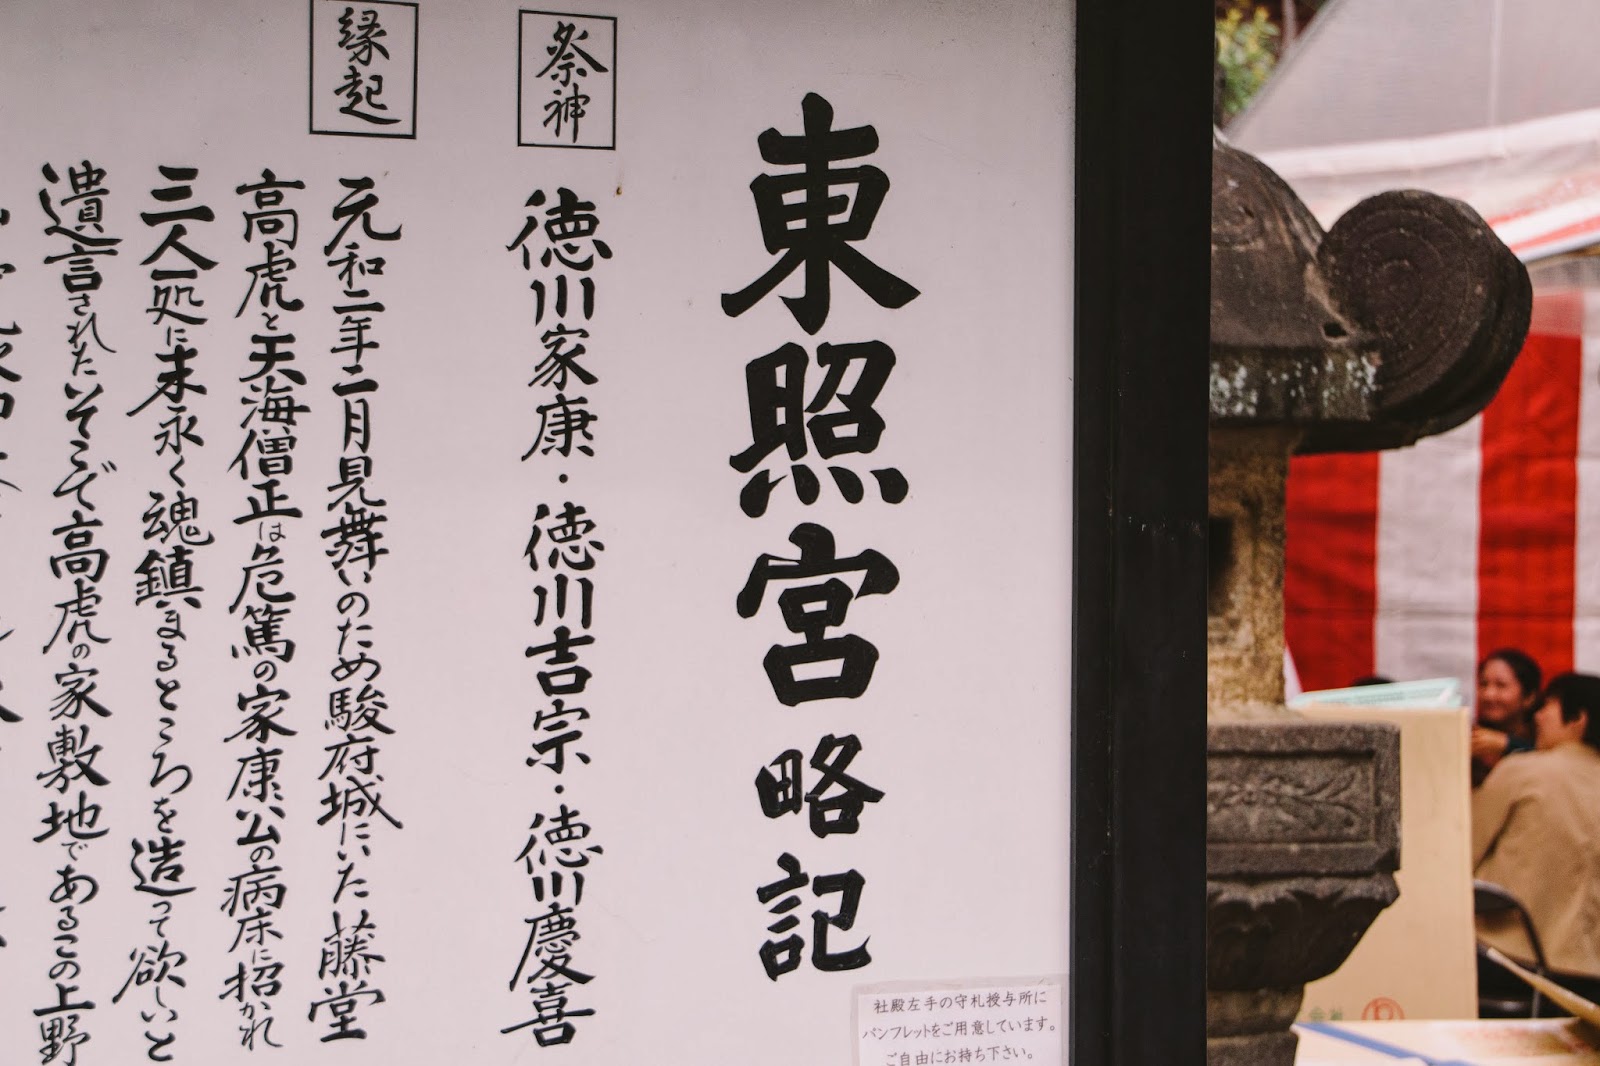 東照宮略記
祭神
徳川家康・徳川吉宗・徳川慶喜
縁起
元和二年二月見舞いのため駿府城にいた藤堂
高虎と天海僧正は危篤の家康公の病床に招かれ
三人一処に末永く魂鎮まるところを造って欲しいと
遺言されたいそこで高虎の家敷地であるこの上野
社殿左手の守札授与所に
パンフレットをご用意しています。
ご自由にお持ち下さい。